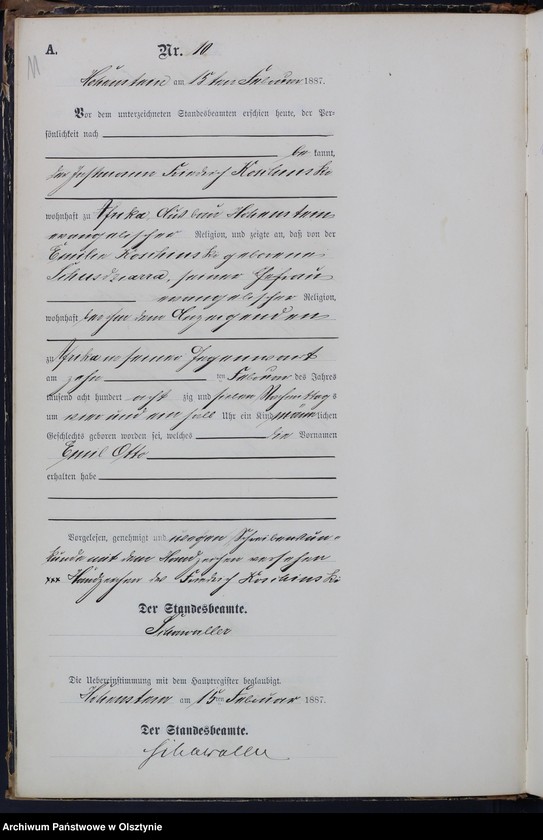 A. Nr. 10
Hohenstein am 15ten Februar 1887.
Vor dem unterzeichneten Standesbeamten erschien heute, der Per-
sönlichkeit nach
be kannt,
der Instmann Friedrich Koschinski
wohnhaft zu Afrika Ausbau Hohenstein
evangelischer Religion, und zeigte an, daß von der
Emilie Koschinski geborene
seiner Ehefrau
evangelischer Religion,
wohnhaft bei dem Anzeigenden
zu Afrika in seiner Gegenwart
am zehn ten Februar des Jahres
tausend acht hundert acht zig und sieben Nachmittags
um vier und ein halb Uhr ein Kind männ lichen
Geschlechts geboren worden sei, welches die Vornamen
Emil Otto
erhalten habe
Vorgelesen, genehmigt und wegen Schreibensun-
kunde mit dem Handzeichen versehen
xxx Handzeichen des Friedrich Koschinski
Der Standesbeamte.
Schawaller
Die Uebereinstimmung mit dem Hauptregister beglaubigt.
Hohenstein am 15ten Februar 1887.
Der Standesbeamte.
Schawaller
Archiwum Państwowe w Olsztynie